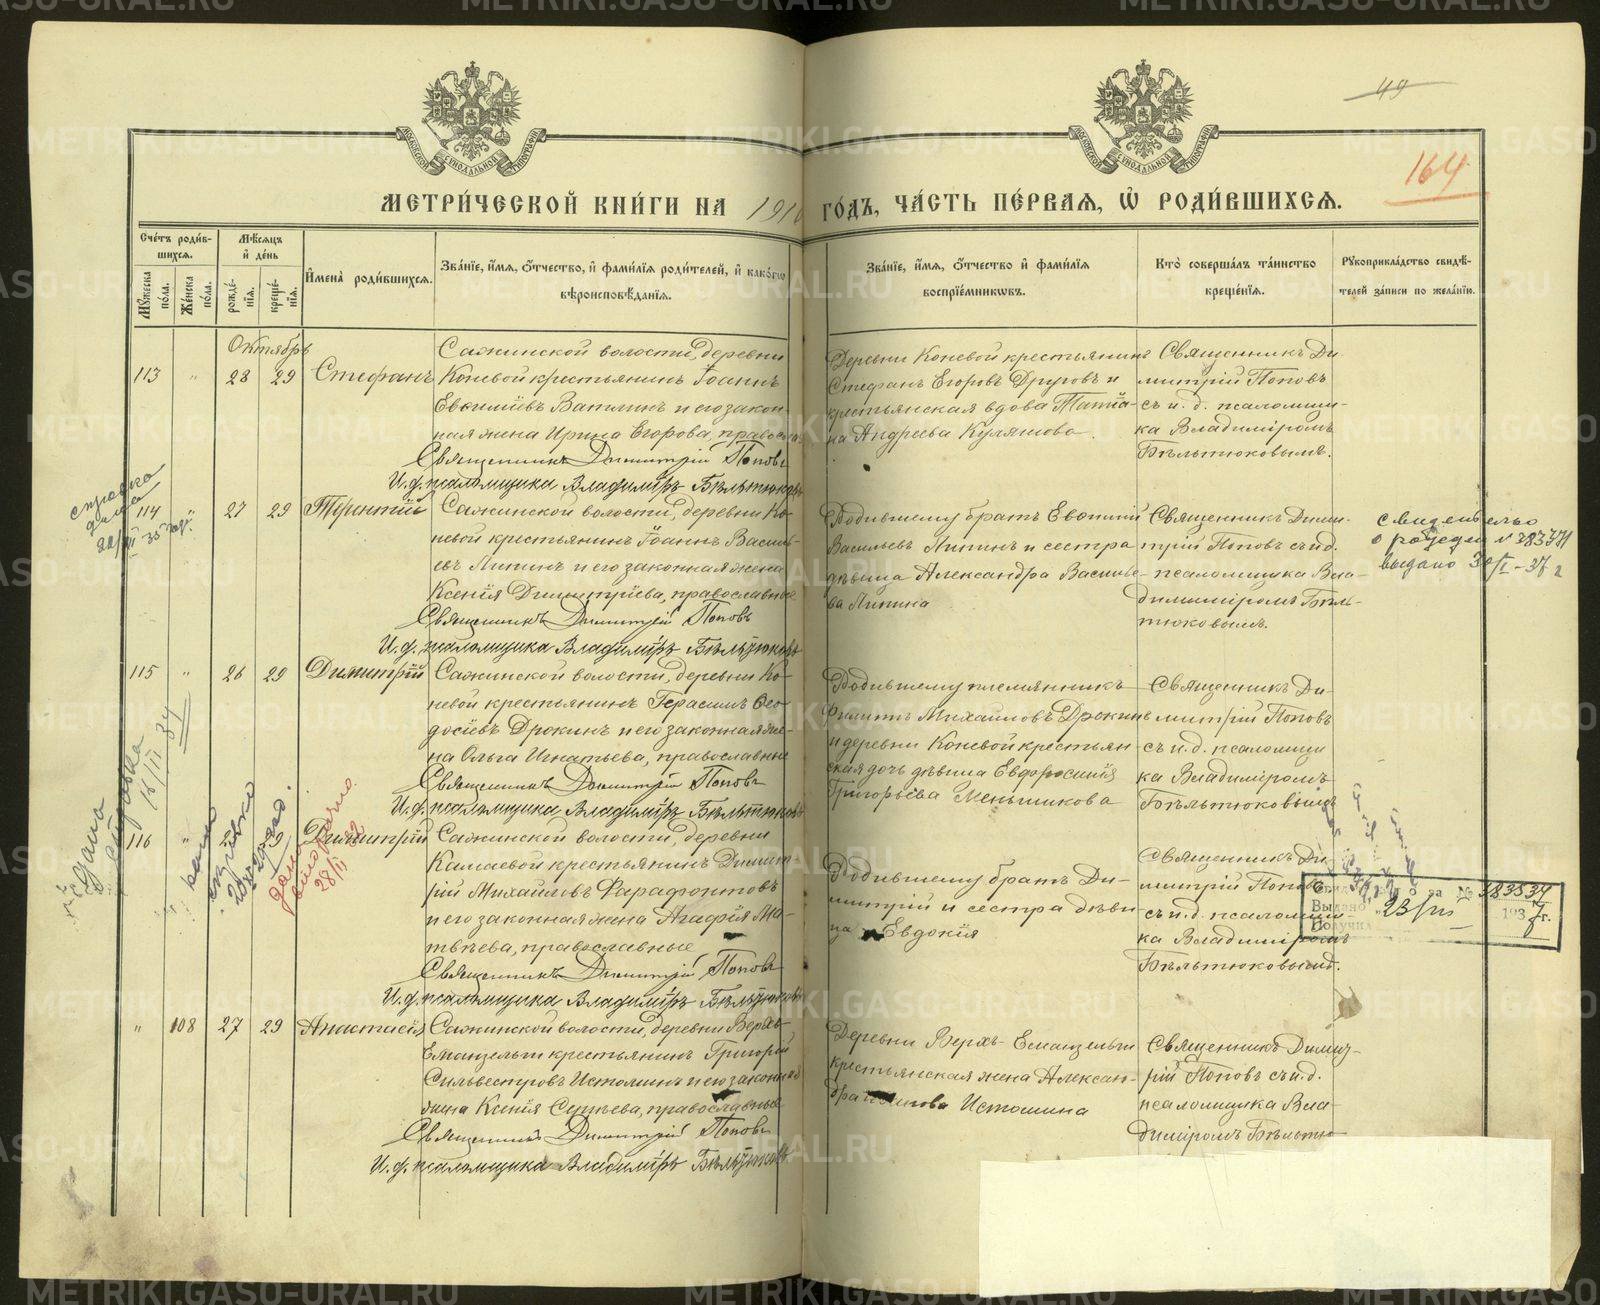 49
164
МЕТРИ́ЧЕСКОЙ КНИ́ГИ НА 1910 ГО́ДЪ, ЧА́СТЬ ПЕ́РВАЯ, Ѡ РОДИ́ВШИХСЯ.
Сче́тъ роди́в-
шихся.
Мѣ́сяцъ
и҆ де́нь
Мꙋ́жеска по́ла.
Же́нска по́ла.
рожде́-
нїѧ.
креще́-
нїѧ.
И҆мена̀ роди́вшихся.
Зва́нїе, и҆́мѧ, ѻ҆́тчество, и҆ фами́лїѧ роди́телей, и҆ како́гѡ
вѣроисповѣ́данїѧ.
Зва́нїе, и҆́мѧ, ѻ҆́тчество и҆ фами́лїѧ
воспрїе́мникѡвъ.
Кто̀ соверша́лъ та́инство
креще́нїѧ.
Рꙋкоприкла́дство свидѣ́-
телей за́писи по жела́нїю.
Октябрь
113 " 28 29 Стефанъ
Сажинской волости, деревни
Коневой крестьянинъ Іоаннъ
Евѳимїевъ Ватлинъ и его закон-
ная жена Ирина Егорова, правосл.
Священникъ Димитрій Поповъ
И.д. псаломщика Владимїръ Бѣльтюковъ
Деревни Коневой крестьянинъ
Стефанъ Егоровъ Друговъ и
крестьянская вдова Татїа-
на Андреева Куляшова.
Священникъ Ди-
митрій Поповъ
съ и. д. псаломщи-
ка Владимїромъ
Бѣльтюковымъ.
справка
дана
114 " 27 29 Терентїй
Сажинской волости, деревни Ко-
невой крестьянинъ Іоаннъ Василь-
евъ Липинъ и его законная жена
Ксенїя Димитрїева, православные
Священникъ Димитрій Поповъ
И.д. псаломщика Владимїръ Бѣльтюковъ
Родившему братъ Евѳимїй
Васильевъ Липинъ и сестра
дѣвица Александра Василье-
ва Липина
Священникъ Дими-
трій Поповъ съ и.д.
псаломщика Вла-
димиромъ Бѣль-
тюковымъ.
свидетельство
о рожден № 383371
выдано 30/I - 37 г
115 " 26 29 Димитрїй
Сажинской волости, деревни Ко-
невой крестьянинъ Герасимъ Ѳео-
досїевъ Дрокинъ и его законная же-
на Ольга Игнатьева, православные
Священникъ Димитрій Поповъ
И.д. псаломщика Владимїръ Бѣльтюковъ
Родившему племянникъ
Филиппъ Михаиловъ Дрокинъ
и деревни Коневой крестьян-
ская дочь дѣвица Евфросинїя
Григорьева Меньшикова
Священникъ Ди-
митрій Поповъ
съ и.д. псаломщи
ка Владимїромъ
Бѣльтюковымъ
Дана
справка
16/II 34
116 " Димитрїй
Сажинской волости, деревни
Камаевой крестьянинъ Димит-
рїй Михаиловъ Фарафонтовъ
и его законная жена Агафїя Ма-
твѣева, православные
Священникъ Димитрій Поповъ
И.д. псаломщика Владимїръ Бѣльтюковъ
Родившему братъ Ди-
митрій и сестра дѣви-
ца Евдокїя
Священникъ Ди-
митрій Поповъ
съ и.д. псаломщи-
ка Владимїромъ
Бѣльтюковымъ.
28/II 32
№ 383534
Выдано "23/III 1937г.
Получил
" 108 27 29 Анастасїя
Сажинской волости, деревни Верхъ-
Еманзельги крестьянинъ Григорїй
Сильвестровъ Истоминъ и его законная
жена Ксенїя Сергѣева, православные
Священникъ Димитрій Поповъ
И.д. псаломщика Владимїръ Бѣльтюковъ
Деревни Верхъ-Еманзельги
крестьянская жена Алексан-
дра Истомина
Священникъ Димит-
рій Поповъ съ и.д.
псаломщика Вла-
димїромъ Бѣльтю-